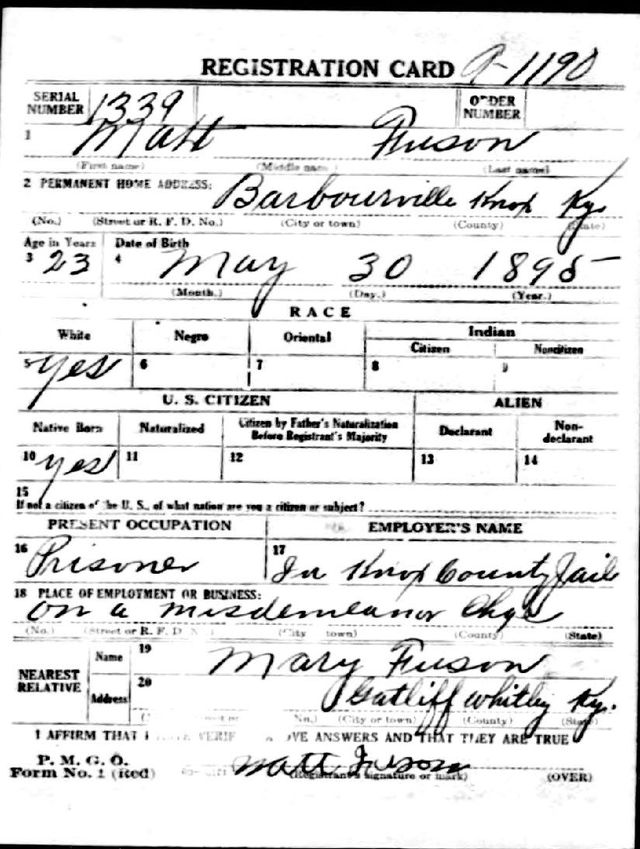 REGISTRATION CARD A-1190
SERIAL NUMBER 1339 ORDER NUMBER
1 Matt Fuson
(First name) (Middle name) (Last name)
2 PERMANENT HOME ADDRESS: Barbourville Knox Ky.
(No.) (Street or R. F. D. No.) (City or town) (County) (State)
Age in Years Date of Birth
3 23 4 May 30 1895
(Month.) (Day.) (Year.)
RACE
White Negro Oriental Indian
Citizen Noncitizen
5 yes 6 7 8 9
U. S. CITIZEN ALIEN
Native Born Naturalized Citizen by Father's Naturalization Before Registrant's Majority Declarant Non-declarant
10 yes 11 12 13 14
15
If not a citizen of the U. S., of what nation are you a citizen or subject?
PRESENT OCCUPATION EMPLOYER'S NAME
16 Prisoner 17 In Knox County Jail
18 PLACE OF EMPLOYMENT OR BUSINESS:
on a misdemeanor Chge
(No.) (Street or R. F. D. N ) (City town) (County) (State)
NEAREST RELATIVE Name 19 Mary Fuson
Address 20 Gatliff Whitley Ky.
No.) (City or town) (County) (State)
I AFFIRM THAT I VERIF OVE ANSWERS AND THAT THEY ARE TRUE
P. M. G. O.
Form No. 1 (Red) Matt Fuson
(Registrant's signature or mark) (OVER)